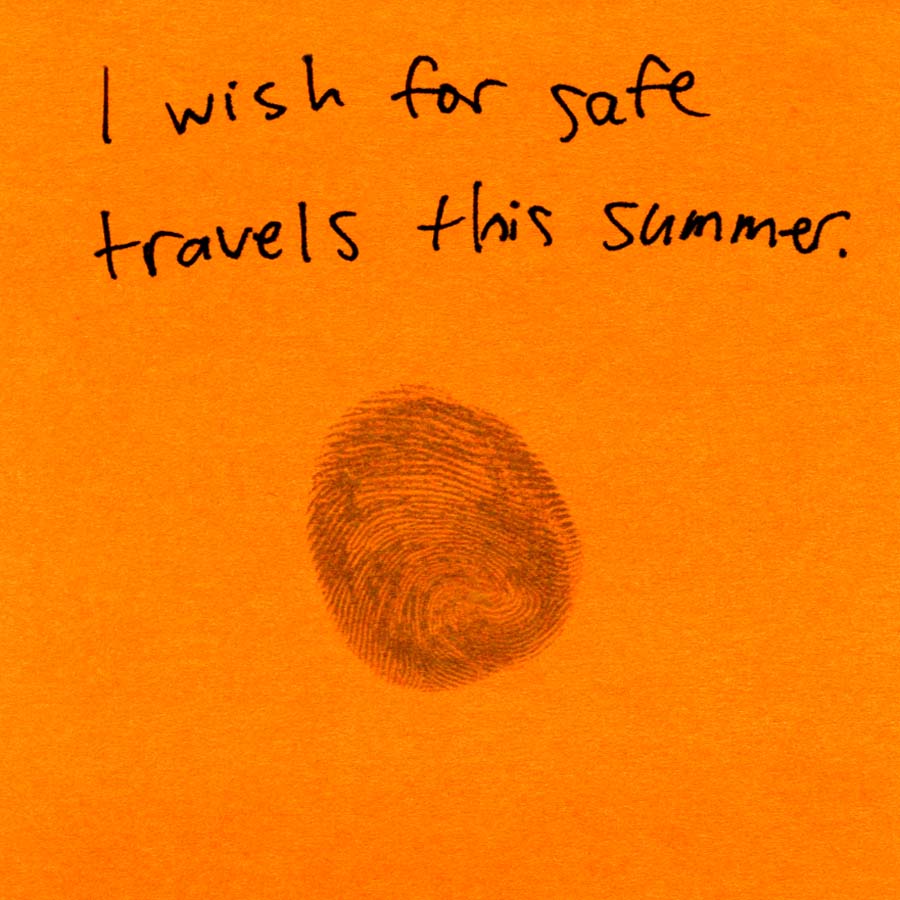 I wish for safe
travels this summer.